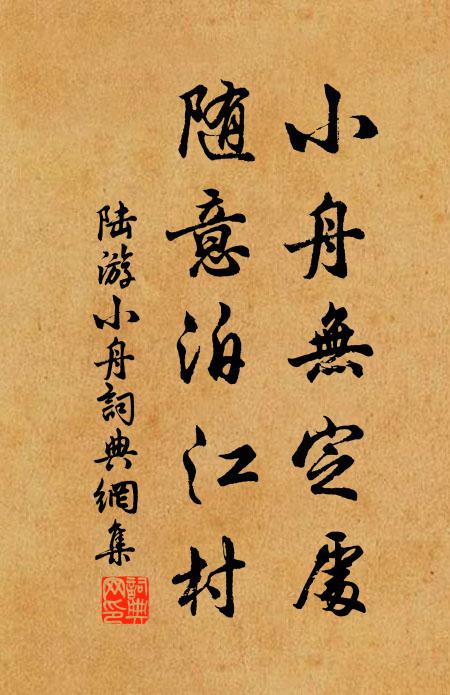 小舟無定處
随意泊江村
陆游小舟詞典網集
詞典网印